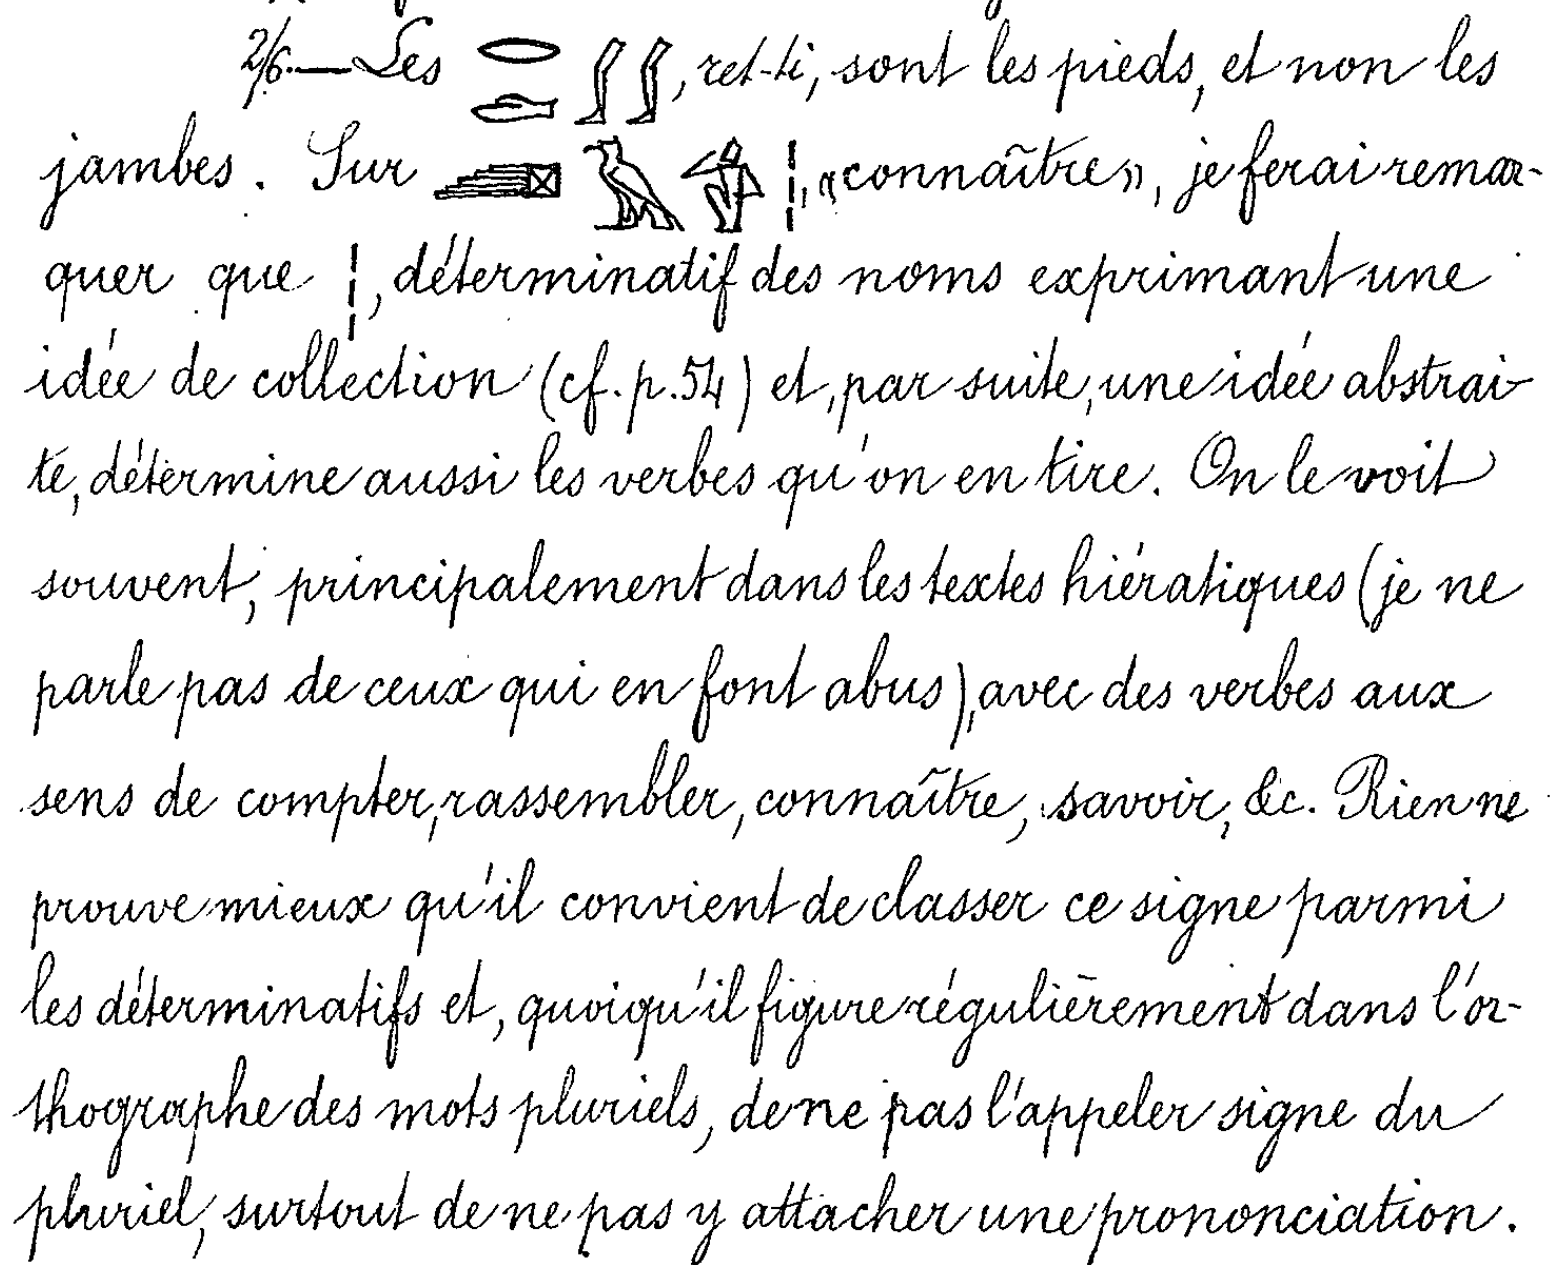 2/6.—Les 𓂋𓂧𓂾𓂾, ret-ti, sont les pieds, et non les
jambes. Sur 𓅓𓀁𓏥, «connaître», je ferai remar-
quer que 𓏥, déterminatif des noms exprimant une
idée de collection (cf. p. 54) et, par suite, une idée abstrai-
te, détermine aussi les verbes qu'on en tire. On le voit
souvent, principalement dans les textes hiératiques (je ne
parle pas de ceux qui en font abus), avec des verbes aux
sens de compter, rassembler, connaître, savoir, &c. Rien ne
prouve mieux qu'il convient de classer ce signe parmi
les déterminatifs et, quoiqu'il figure régulièrement dans l'or-
thographe des mots pluriels, de ne pas l'appeler signe du
pluriel, surtout de ne pas y attacher une prononciation.